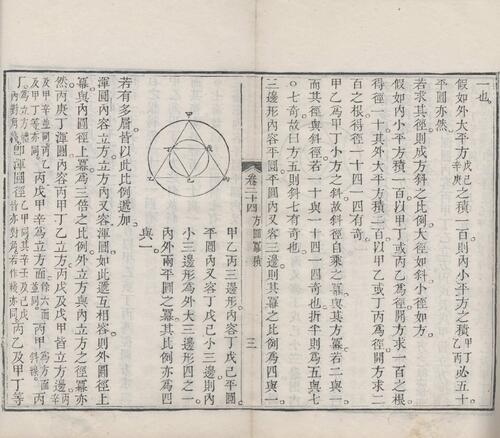 一也
假如外大平方戊己辛庚之積一百則內小平方之積甲丁丙乙必五十
平圓亦然
若求其徑則成方斜之比例大徑如斜小徑如方
假如內小平方積一百以甲丁或丙乙為徑開方求一百之根
得徑一十其外大平方積二百以甲乙或丁丙為徑開方求二
百之根得徑一十四一四有奇
甲乙為甲丁小方之斜故斜徑自乘之冪與其方冪若二與一
而其徑與斜徑若一十與一十四一四奇也折半則為五與七
〇七奇故曰方五則斜七有奇也
三邊形內容平圓平圓內又容三邊則其冪之比例為四與一
卷二十四 方圓冪積 三
甲
丁
戊
己
乙
丙
甲乙丙三邊形內容丁戊己平圓
平圓內又容丁戊己小三邊則內
小三邊形為外大三邊形四之一
內外兩平圓之冪其比例亦為四
與一
若有多層皆以此比例遞加
渾圓內容立方立方內又容渾圓如此遞互相容則外圓徑上
冪與內圓徑上冪為三倍之比例外立方與內立方之徑冪亦
然丙庚丁渾圓內容丙甲丁乙立方丙戊及戊甲皆立方邊丙辛
及甲辛並同丙乙及甲丁等亦同丙戊甲辛為立方面餘六面並同丙甲為方面斜線丙丁
為立方體內對角線即渾圓徑丙乙及甲丁等